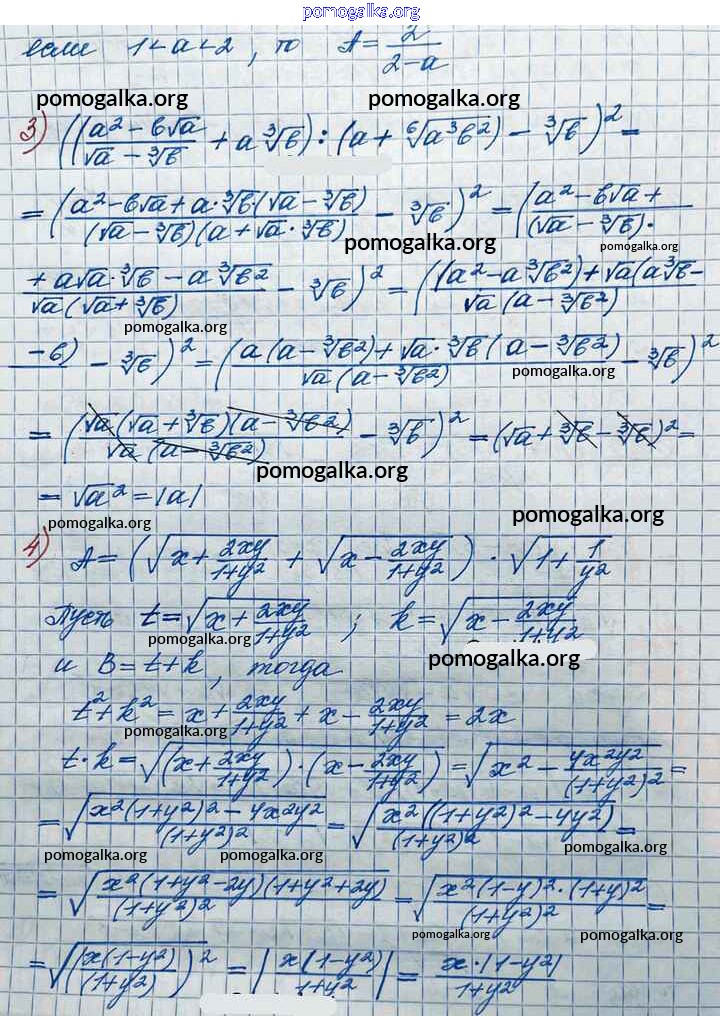 pomogalka.org
если 1<a<2, то A = 2/(2-a)
pomogalka.org pomogalka.org
3) ((a² - b√a)/(√a - ∛b) + a∛b) : (a + ⁶√(a³b²)) - ∛b)² =
= ((a² - b√a + a·∛b(√a - ∛b))/((√a - ∛b)(a + √a·∛b)) - ∛b)² = ((a² - b√a +)/((√a - ∛b)·
pomogalka.org pomogalka.org
(+ a√a·∛b - a∛b²)/(√a(√a + ∛b)) - ∛b)² = (((a² - a∛b²) + √a(a∛b -)/(√a(a - ∛b²))
pomogalka.org
- b) - ∛b)² = ((a(a - ∛b²) + √a·∛b(a - ∛b²))/(√a(a - ∛b²)) - ∛b)²
pomogalka.org
= ((√a(√a + ∛b)(a - ∛b²))/(√a(a - ∛b²)) - ∛b)² = (√a + ∛b - ∛b)² =
pomogalka.org
= √a² = |a|
pomogalka.org pomogalka.org
4) A = (√(x + 2xy/(1+y²)) + √(x - 2xy/(1+y²))) · √(1 + 1/y²)
Пусть t = √(x + 2xy/(1+y²)); k = √(x - 2xy/(1+y²))
pomogalka.org
и B = t + k, тогда
pomogalka.org
t² + k² = x + 2xy/(1+y²) + x - 2xy/(1+y²) = 2x
pomogalka.org
t·k = √((x + 2xy/(1+y²))·(x - 2xy/(1+y²))) = √(x² - 4x²y²/(1+y²)²) =
= √((x²(1+y²)² - 4x²y²)/(1+y²)²) = √((x²((1+y²)² - 4y²))/(1+y²)²) =
pomogalka.org pomogalka.org pomogalka.org
= √((x²(1+y²-2y)(1+y²+2y))/(1+y²)²) = √((x²(1-y)²·(1+y)²)/(1+y²)²) =
pomogalka.org pomogalka.org
= √((x(1-y²)/(1+y²))²) = |x(1-y²)/(1+y²)| = x·|1-y²|/(1+y²)